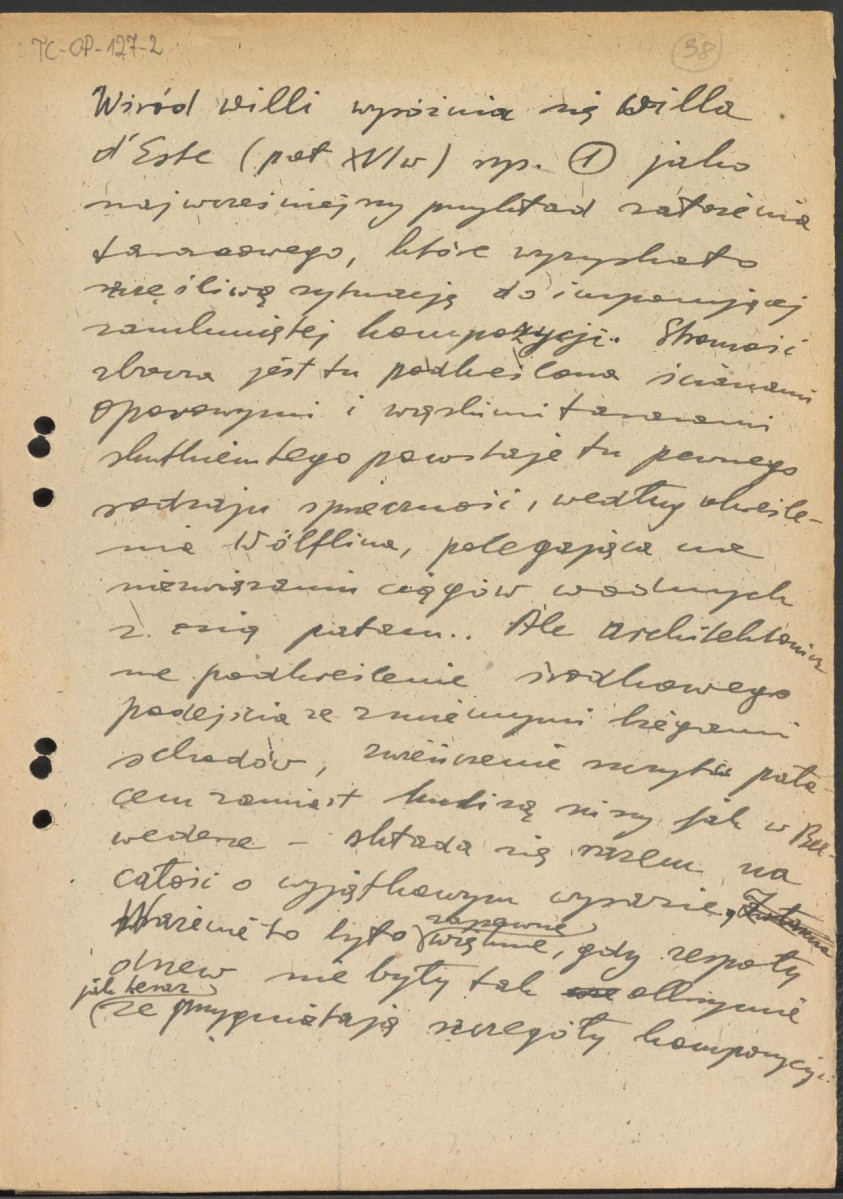 TC-OP-127-2
38
Wśród willi wyróżnia się willa
d'Este (poł XVI w) ryp. 1 jako
najwcześniejszy przykład założenia
tarasowego, które wyzyskało
szczęśliwą sytuację do imponującej
zamkniętej kompozycji. Stromość
zbocza jest tu podkreślona ścianami
oporowymi i wąskimi tarasami
skutkiem tego powstaje tu pewnego
rodzaju sprzeczność, według określe-
nia Wölfflina, polegająca na
niezwiązaniu ciągów wodnych
z osią pałacu.. Ale architektonicz
ne podkreślenie środkowego
podejścia ze zmiennymi biegami
schodów, zwieńczenie szczytu pała-
cem zamiast niszy jak w Bel-
wederze – składa się razem na
całość o wyjątkowym wyrazie,
Wrażenie to było zapewne
większe, gdy zespoły
drzew nie były tak olbrzymie
jak teraz
że przygniatają szczegóły kompozycji.